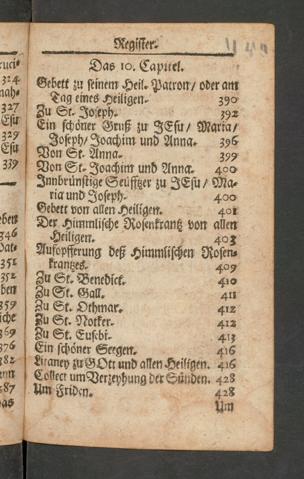 Register.
Das 10. Capitel.
Gebett zu seinem Heil. Patron/ oder am
Tag eines Heiligen. 390
Zu St. Joseph. 392
Ein schöner Gruß zu JEsu/ Maria/
Joseph/ Joachim und Anna. 396
Von St. Anna. 399
Von St. Joachim und Anna. 400
Innbrünstige Seufftzer zu JEsu/ Ma-
ria und Joseph. 400
Gebett von allen Heiligen. 401
Der Himmlische Rosenkrantz von allen
Heiligen. 403
Aufopfferung deß Himmlischen Rosen-
krantzes. 409
Zu St. Benedict. 410
Zu St. Gall. 411
Zu St. Othmar. 412
Zu St. Notker. 412
Zu St. Eusebi. 413
Ein schöner Seegen. 416
Litaney zu GOtt und allen Heiligen. 416
Collect um Verzeyhung der Sünden. 428
Um Friden. 428
Um
ruci-
324
nah-
327
Esu
329
Esu
339
eben
346
351
352
359
369
376
382
387